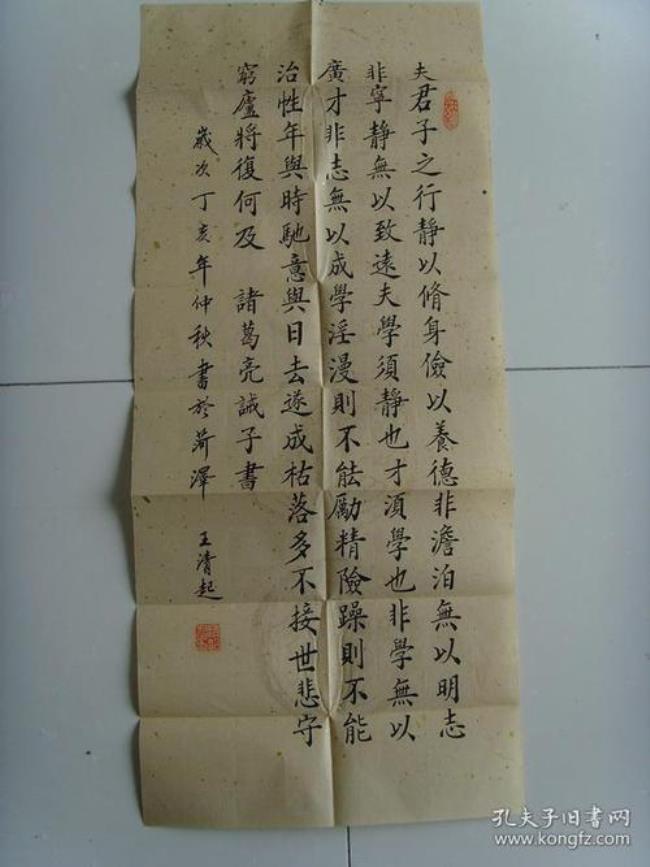 夫君子之行靜以脩身儉以養德非澹泊無以明志
非寧靜無以致遠夫學須靜也才須學也非學無以
廣才非志無以成學淫漫則不能勵精險躁則不能
治性年與時馳意與日去遂成枯落多不接世悲守
窮廬將復何及 諸葛亮誡子書
歲次丁亥年仲秋書於菏澤 王清起
孔夫子旧书网
www.kongfz.com